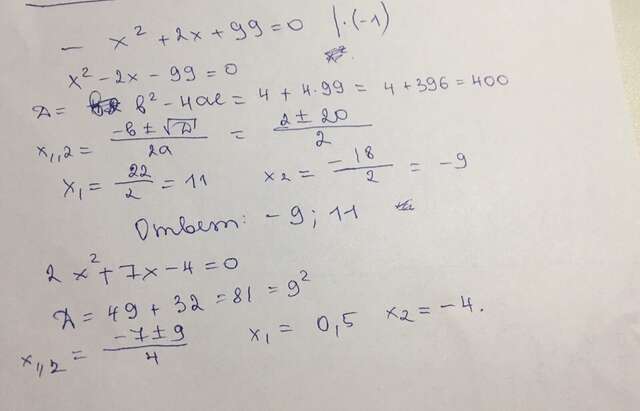 - x² + 2x + 99 = 0 |·(-1)
x² - 2x - 99 = 0
Д = b² - 4ac = 4 + 4·99 = 4 + 396 = 400
x₁,₂ = (-b ± √Д)/2a = (2 ± 20)/2
x₁ = 22/2 = 11 x₂ = -18/2 = -9
Ответ: -9; 11
2x² + 7x - 4 = 0
Д = 49 + 32 = 81 = 9²
x₁,₂ = (-7 ± 9)/4 x₁ = 0,5 x₂ = -4.